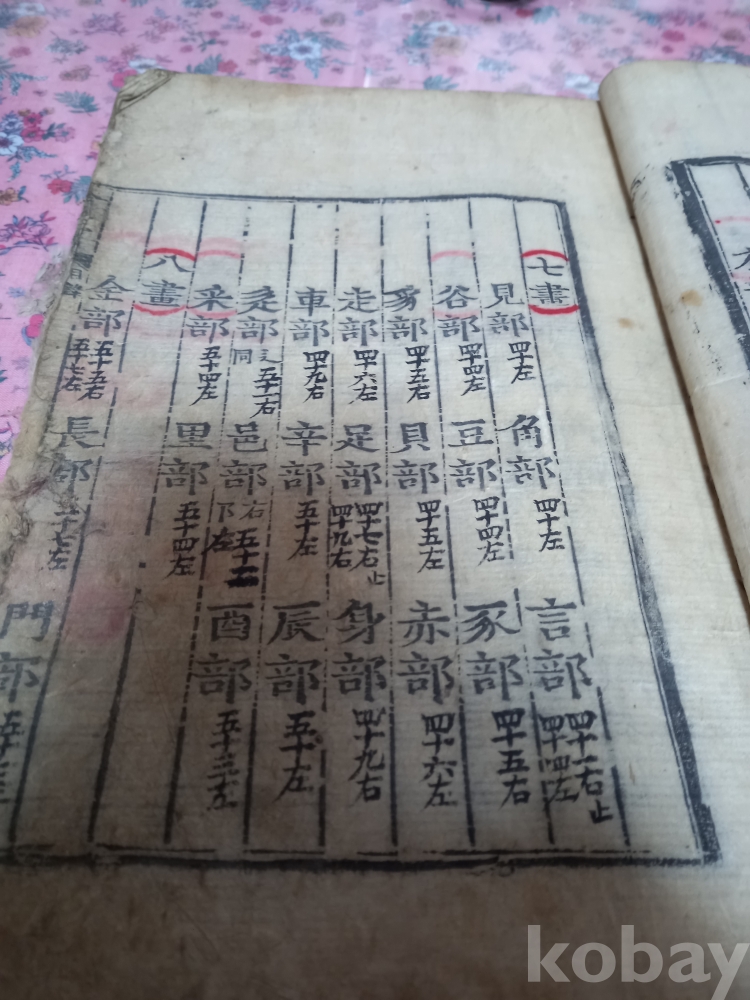 七畫
見部 四十左 角部 四十左 言部 四十一右止 四十四左
谷部 四十四左 豆部 四十四左 豕部 四十五右
豸部 四十五右 貝部 四十五左 赤部 四十六左
走部 四十六左 足部 四十七右止 四十九右 身部 四十九右
車部 四十九右 辛部 五十左 辰部 五十左
辵部 辶同 五十一右 邑部 右 五十二 下左 酉部 五十三左
釆部 五十四左 里部 五十四左
八畫
金部 五十五右 五十七左 長部 五十七左 門部
kobay